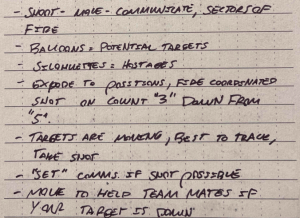 - SHOOT - MOVE - COMMUNICATE, SECTORS OF
FIRE
- BALLOONS = POTENTIAL TARGETS
- SILHOUETTES = HOSTAGES
- EXPODE TO POSITIONS, FIRE COORDINATED
SHOT ON COUNT "3" DOWN FROM
"5".
- TARGETS ARE MOVING, BEST TO TRACK,
TAKE SHOT
- "SET" COMMS IF SHOT POSSIBLE
- MOVE TO HELP TEAM MATES IF
YOUR TARGET IS DOWN